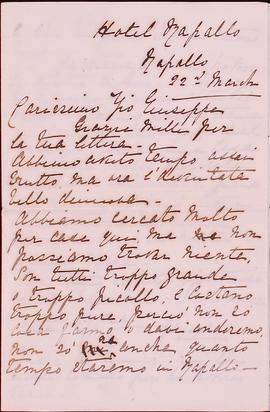 Hotel Rapallo
Rapallo
22nd March
Carissimo Zio Giuseppe
Grazie Mille per
la tua lettera.
Abbiamo avuto tempo assai
brutto, ma ora è diventata
bello di nuovo.
Abbiamo cercato molto
per case qui, ma non
possiamo trovar niente,
Son tutti troppo grande
o troppo piccolo, e costano
troppo pure, perciò non so
cosa farmo, o dove andremo,
non so ancha quanto
tempo staremo in Rapallo.